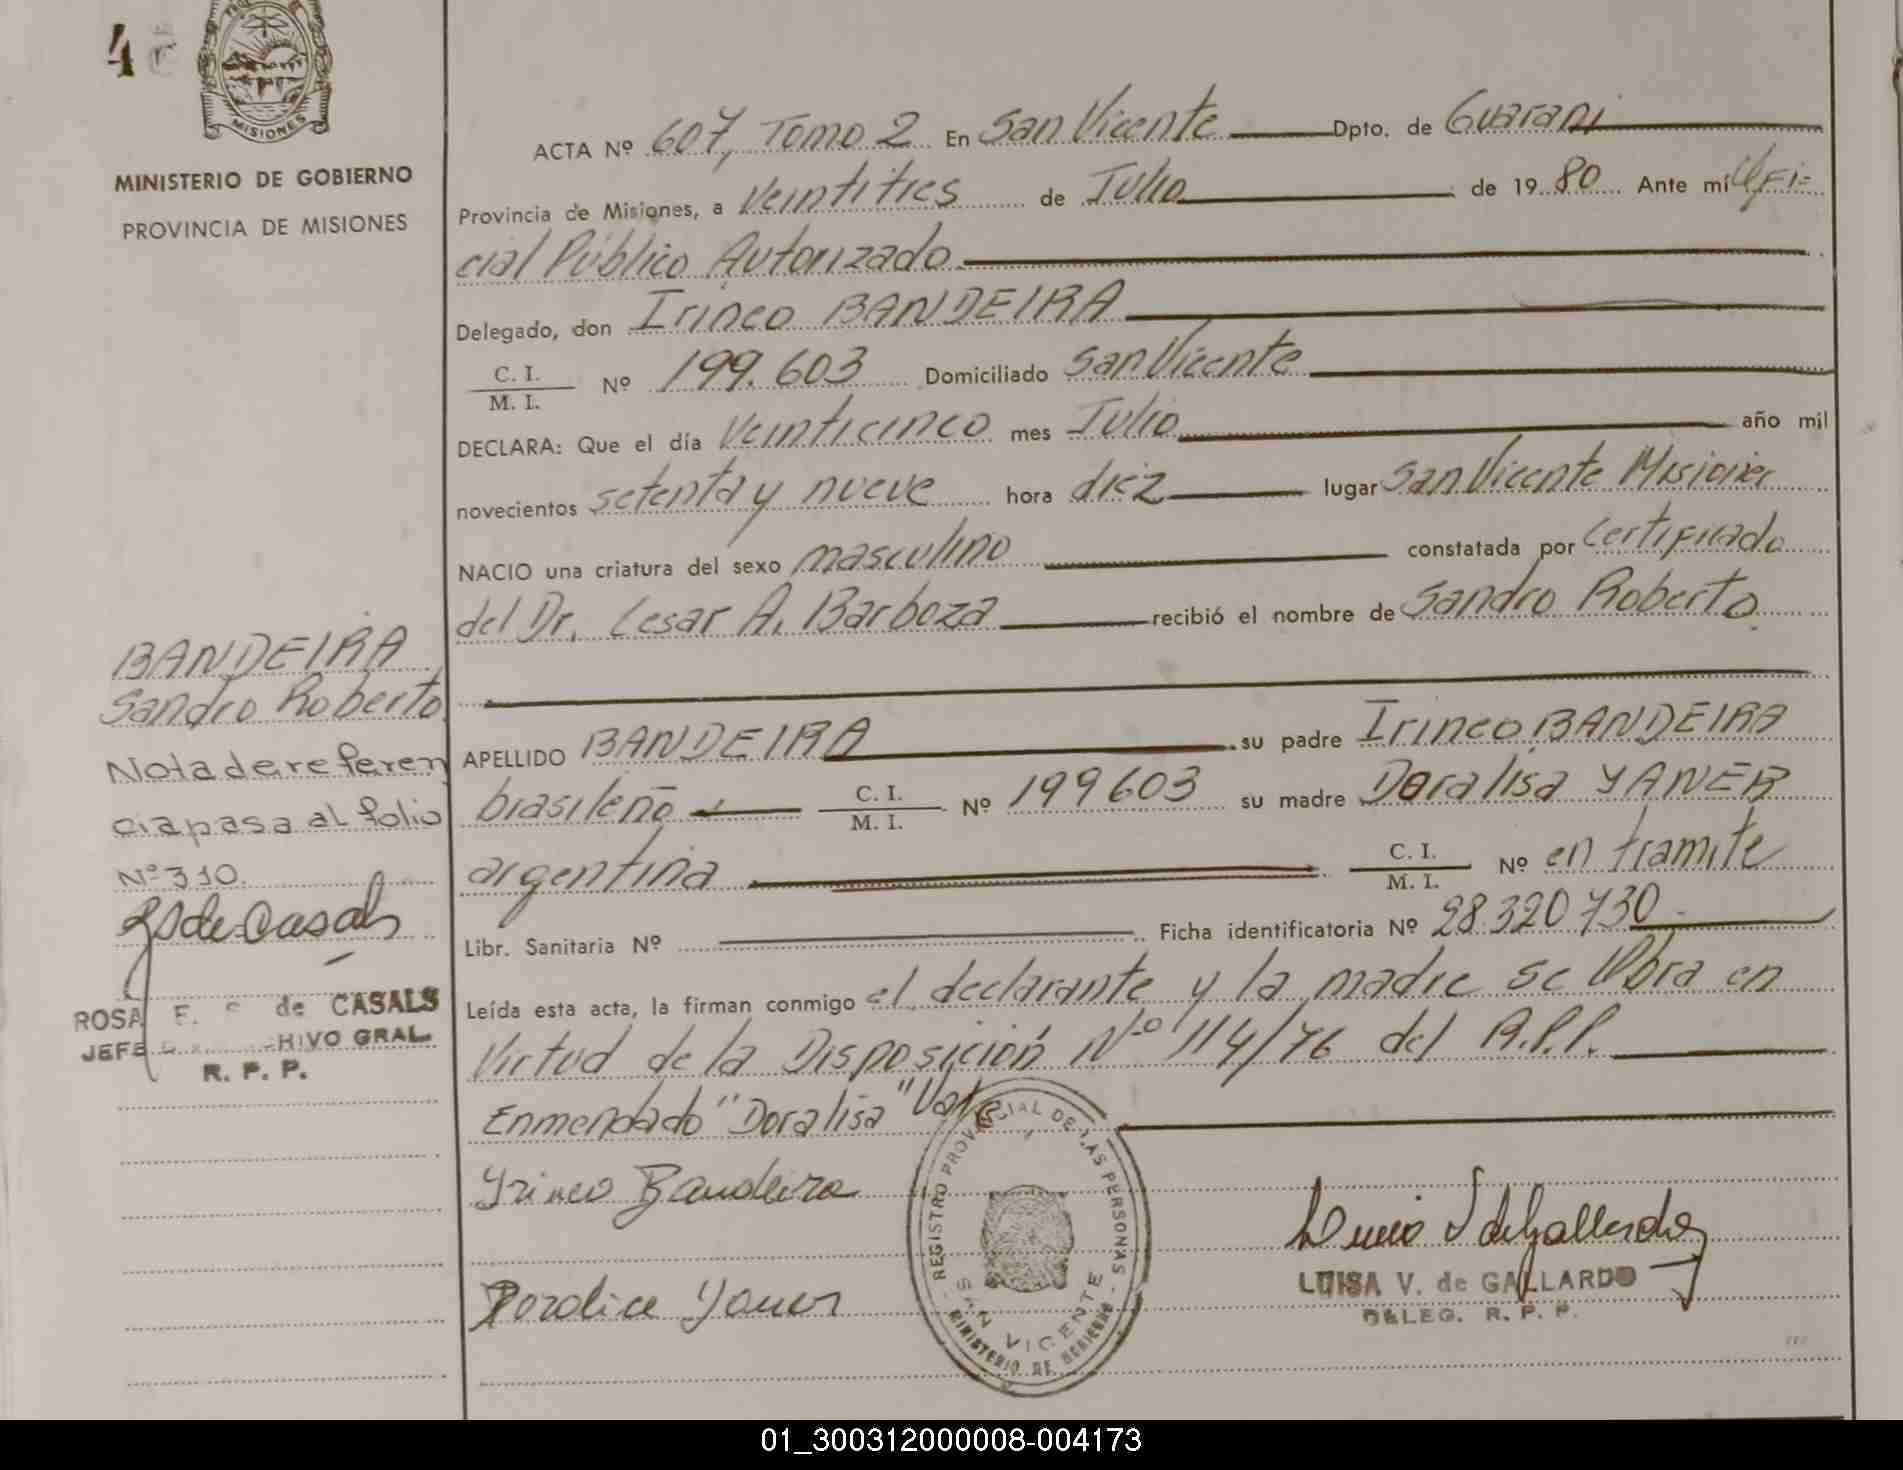 4
MISIONES
MINISTERIO DE GOBIERNO
PROVINCIA DE MISIONES
BANDEIRA
Sandro Roberto
Nota de referen
cia pasa al folio
Nº 310.
RS de Casals
ROSA E. S de CASALS
JEFE HIVO GRAL.
R. P. P.
ACTA Nº 607, Tomo 2 En San Vicente Dpto. de Guarani
Provincia de Misiones, a Veintitres de Julio de 19 80 Ante mí Ofi-
cial Público Autorizado
Delegado, don Irineo BANDEIRA
C. I.
M. I. Nº 199.603 Domiciliado San Vicente
DECLARA: Que el día Veinticinco mes Julio año mil
novecientos setenta y nueve hora diez lugar San Vicente Misiones
NACIO una criatura del sexo masculino constatada por Certificado
del Dr. Cesar A. Barboza recibió el nombre de Sandro Roberto
APELLIDO BANDEIRA su padre Irineo BANDEIRA
brasileño C. I.
M. I. Nº 199603 su madre Doralisa YANER
argentina C. I.
M. I. Nº en tramite
Libr. Sanitaria Nº Ficha identificatoria Nº 28.320.730
Leída esta acta, la firman conmigo el declarante y la madre se Obra en
Virtud de la Disposición Nº 114/76 del R.P.P.
Enmendado "Doralisa" Vale
Yrineo Bandeira
Doralice Yaner
REGISTRO PROVINCIAL DE LAS PERSONAS
SAN VICENTE
MINISTERIO DE GOBIERNO
LUISA V. de GALLARDO
DELEG. R. P. P.
01_300312000008-004173